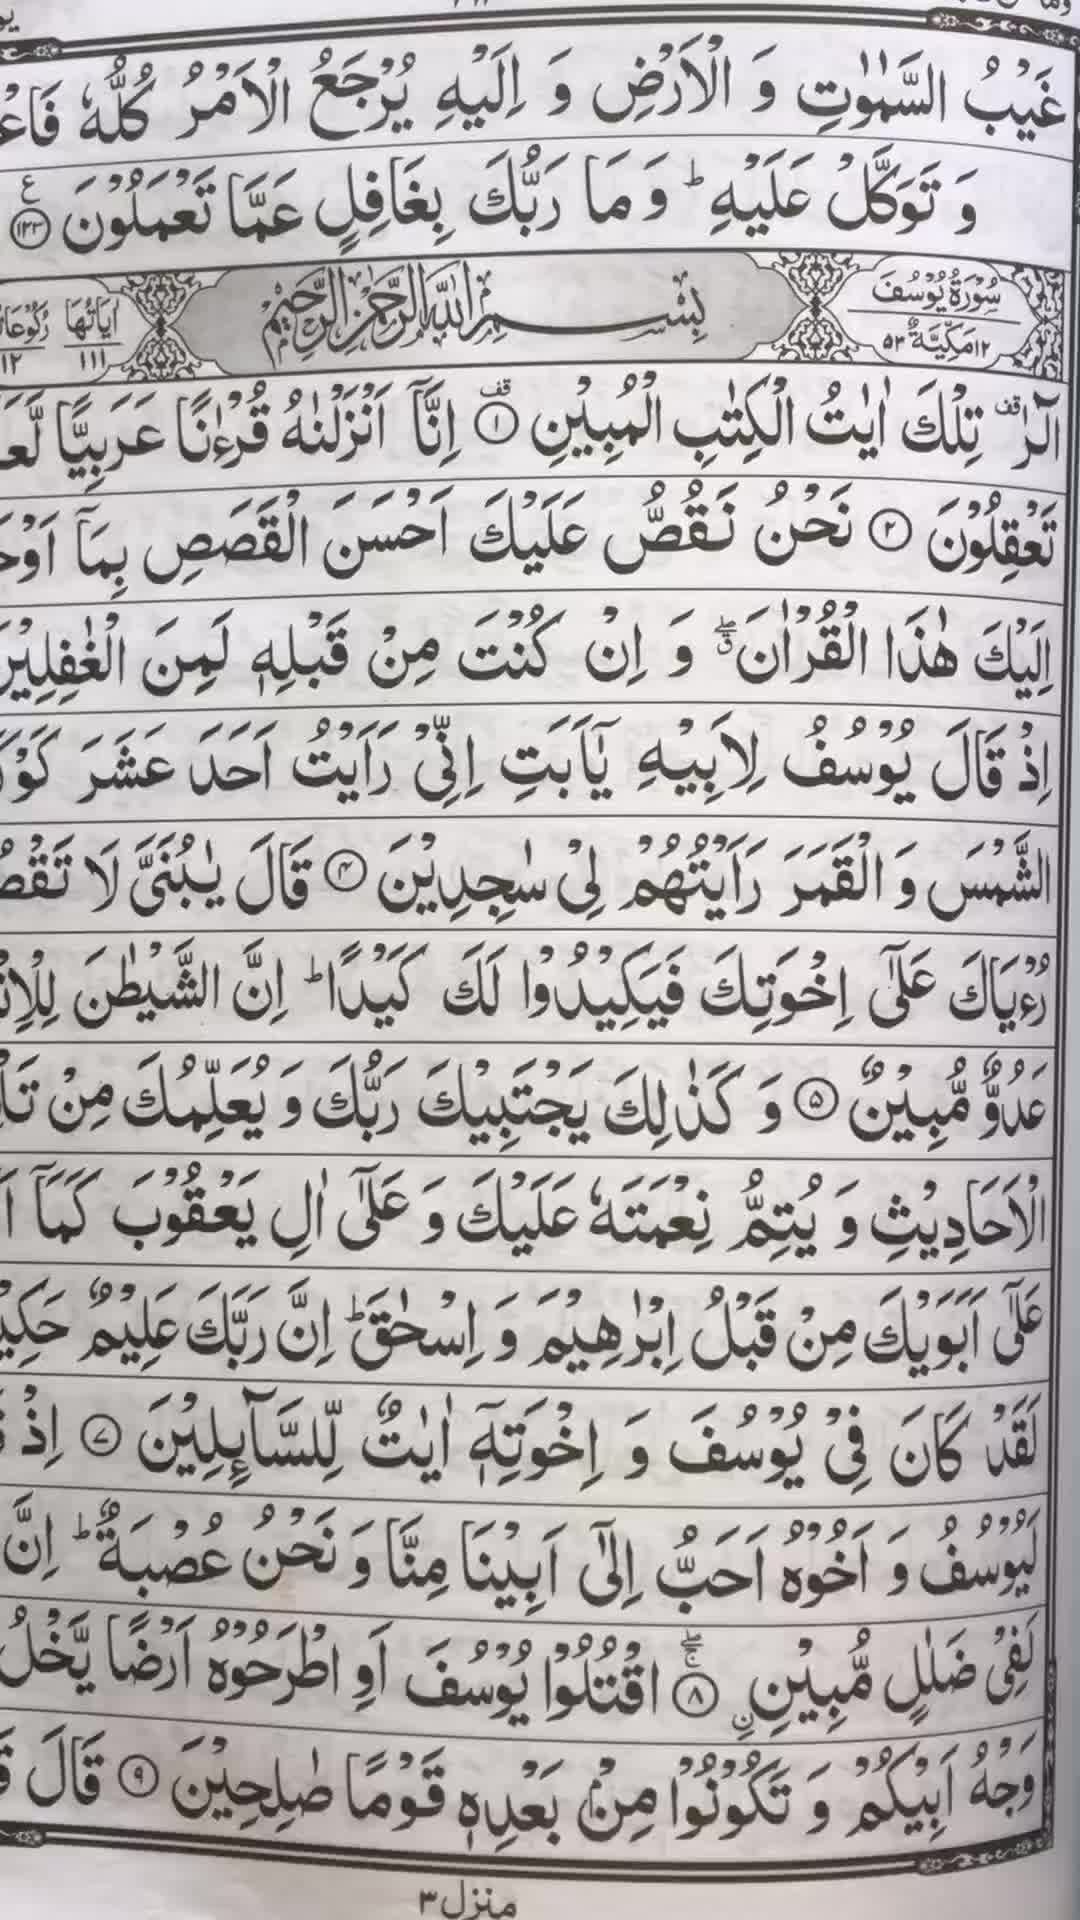 غَيْبُ السَّمٰوٰتِ وَ الْاَرْضِ وَ اِلَيْهِ يُرْجَعُ الْاَمْرُ كُلُّهٗ
وَ تَوَكَّلْ عَلَيْهِ ؕ وَ مَا رَبُّكَ بِغَافِلٍ عَمَّا تَعْمَلُوْنَ ۧ ﴿۱۲۳﴾
سُوْرَةُ يُوْسُفَ
۱۲ مَكِّيَّةٌ ۵۳
بِسْمِ اللّٰهِ الرَّحْمٰنِ الرَّحِيْمِ
اٰيَاتُهَا ۱۱۱
۱۲
الٓرٰ ۟قف تِلْكَ اٰيٰتُ الْكِتٰبِ الْمُبِيْنِ ﴿۱﴾ قف اِنَّاۤ اَنْزَلْنٰهُ قُرْءٰنًا عَرَبِيًّا
تَعْقِلُوْنَ ﴿۲﴾ نَحْنُ نَقُصُّ عَلَيْكَ اَحْسَنَ الْقَصَصِ بِمَاۤ
اِلَيْكَ هٰذَا الْقُرْاٰنَ ۖۗ وَ اِنْ كُنْتَ مِنْ قَبْلِهٖ لَمِنَ
اِذْ قَالَ يُوْسُفُ لِاَبِيْهِ يٰۤاَبَتِ اِنِّيْ رَاَيْتُ اَحَدَ عَشَرَ
الشَّمْسَ وَ الْقَمَرَ رَاَيْتُهُمْ لِيْ سٰجِدِيْنَ ﴿۴﴾ قَالَ يٰبُنَيَّ لَا
رُءْيَاكَ عَلٰۤى اِخْوَتِكَ فَيَكِيْدُوْا لَكَ كَيْدًا ؕ اِنَّ الشَّيْطٰنَ
عَدُوٌّ مُّبِيْنٌ ﴿۵﴾ وَ كَذٰلِكَ يَجْتَبِيْكَ رَبُّكَ وَ يُعَلِّمُكَ مِنْ
الْاَحَادِيْثِ وَ يُتِمُّ نِعْمَتَهٗ عَلَيْكَ وَ عَلٰۤى اٰلِ يَعْقُوْبَ كَمَاۤ
عَلٰۤى اَبَوَيْكَ مِنْ قَبْلُ اِبْرٰهِيْمَ وَ اِسْحٰقَ ؕ اِنَّ رَبَّكَ عَلِيْمٌ
لَقَدْ كَانَ فِيْ يُوْسُفَ وَ اِخْوَتِهٖۤ اٰيٰتٌ لِّلسَّآىِٕلِيْنَ ﴿۷﴾ اِذْ
لَيُوْسُفُ وَ اَخُوْهُ اَحَبُّ اِلٰۤى اَبِيْنَا مِنَّا وَ نَحْنُ عُصْبَةٌ ؕ اِنَّ
لَفِيْ ضَلٰلٍ مُّبِيْنِ ﴿۸﴾ ۖۚ اقْتُلُوْا يُوْسُفَ اَوِ اطْرَحُوْهُ اَرْضًا يَّخْلُ
وَجْهُ اَبِيْكُمْ وَ تَكُوْنُوْا مِنْۢ بَعْدِهٖ قَوْمًا صٰلِحِيْنَ ﴿۹﴾ قَالَ
منزل ۳